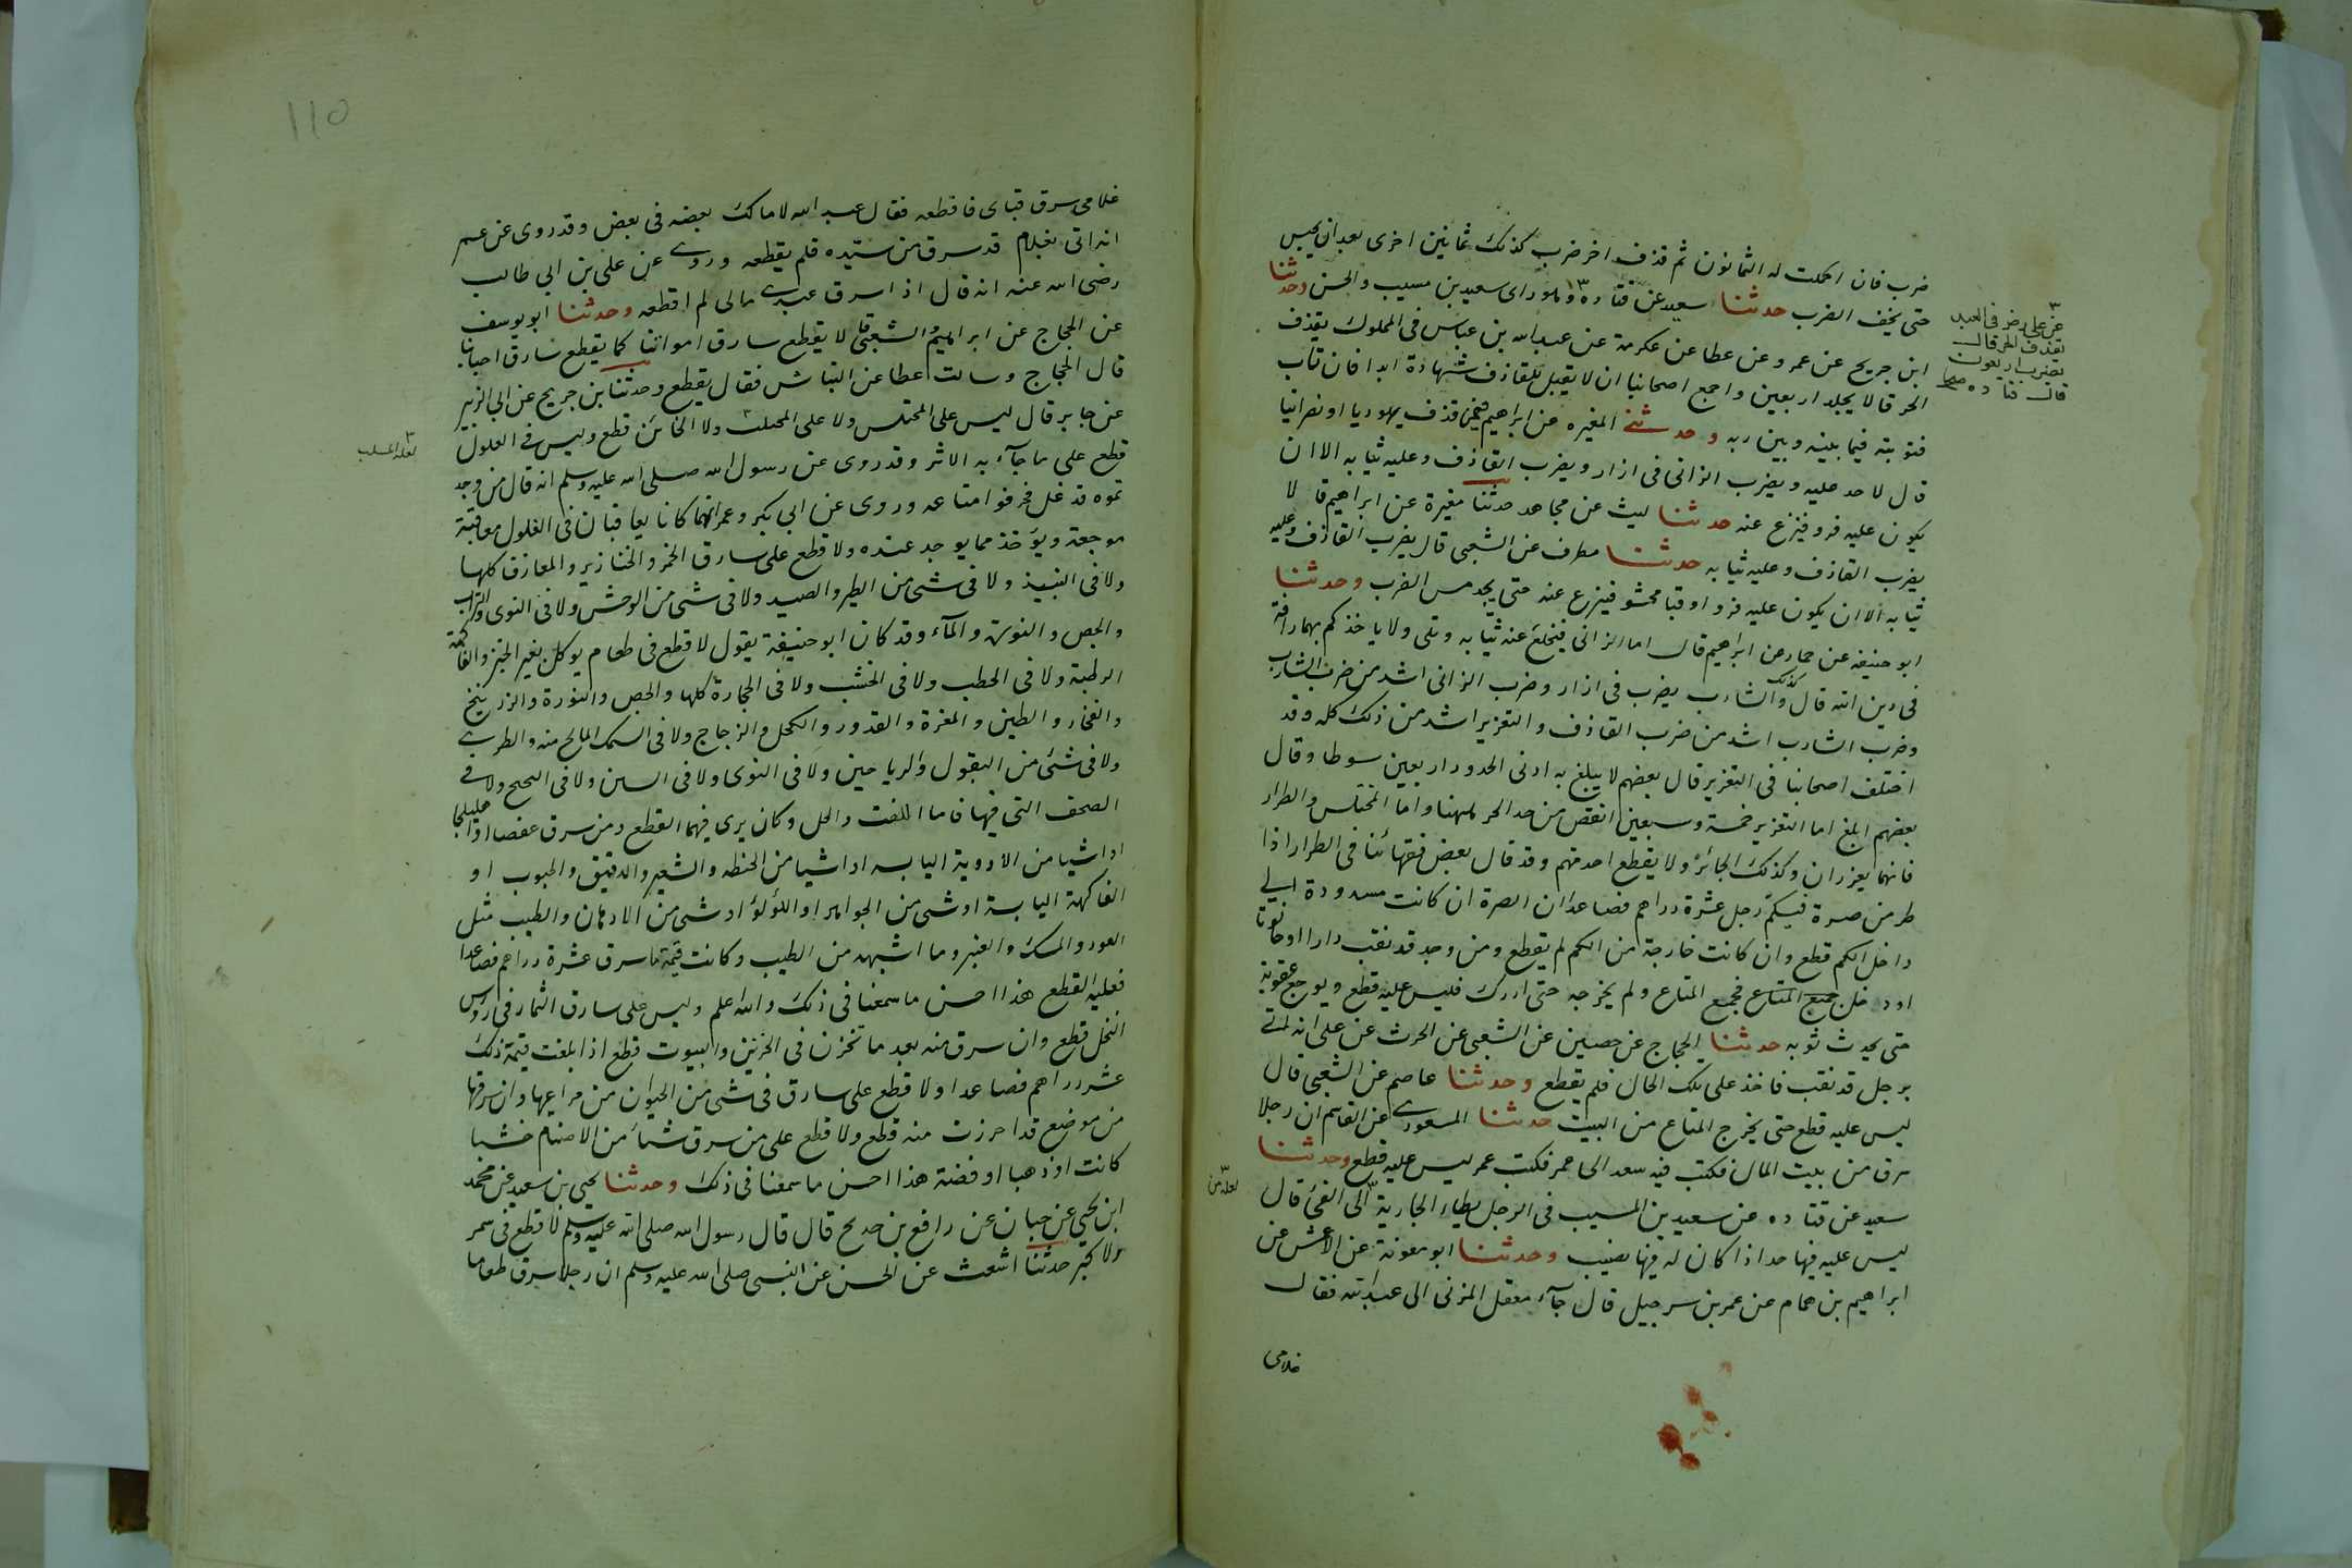 ضرب فان اكملت له الثمانون ثم قذف اخر ضرب كذلك ثمانين اخرى بعد ان يحبس
حتى يخف الضرب حدثنا سعيد عن قتاده وهو راى سعيد بن مسيب والحسن وحدثنا
ابن جريح عن عمر وعن عطا عن عكرمة عن عبد الله بن عباس فى المملوك يقذف
الحر قال يجلد اربعين واجمع اصحابنا ان لا يقبل للقاذف شهادة ابدا فان تاب
فتوبته فيما بينه وبين ربه وحدثنى المغيره عن ابراهيم فيمن قذف يهوديا او نصرانيا
قال لا حد عليه ويضرب الزانى فى ازار ويضرب القاذف وعليه ثيابه الا ان
يكون عليه فرو فينزع عنه حدثنا ليث عن مجاهد حدثنا مغيرة عن ابراهيم قالا
يضرب القاذف وعليه ثيابه حدثنا مطرف عن الشعبى قال يضرب القاذف وعليه
ثيابه الا ان يكون عليه فرو او قبا محشو فينزع عنه حتى يجد مس الضرب وحدثنا
ابو حنيفه عن حماد عن ابراهيم قال اما الزانى فيخلع عنه ثيابه وتلى ولا ياخذكم بهما رافة
فى دين الله قال وكذلك الشارب يضرب فى ازار وضرب الزانى اشد من ضرب الشارب
وضرب الشارب اشد من ضرب القاذف والتعزير اشد من ذلك كله وقد
اختلف اصحابنا فى التعزير قال بعضهم لا يبلغ به ادنى الحدود اربعين سوطا وقال
بعضهم ابلغ اما التعزير خمسة وسبعين انقص من حد الحر لمهنا واما المختلس والطرار
فانهما يعزران وكذلك الجائز ولا يقطع احد منهم وقد قال بعض فقهائنا فى الطرار اذا
طر من صرة فيكم رجل عشرة دراهم فصاعدا ان الصرة ان كانت مسدودة الى
داخل الكم قطع وان كانت خارجة من الكم لم يقطع ومن وجد قد نقب دارا او حانوتا
او دخل جميع المتاع فجمع المتاع ولم يخرجه حتى ادرك فليس عليه قطع ويوجع عقوبة
حتى يحدث توبه حدثنا الحجاج عن حصين عن الشعبى عن الحرث عن على انه اتى
برجل قد نقب فاخذ على تلك الحال فلم يقطع وحدثنا عاصم عن الشعبى قال
ليس عليه قطع حتى يخرج المتاع من البيت حدثنا المسعودى عن القاسم ان رجلا
سرق من بيت المال فكتب فيه سعد الى عمر فكتب عمر ليس عليه قطع وحدثنا
سعيد عن قتاده عن سعيد بن المسيب فى الرجل يطاء الجارية الى الفئ قال
ليس عليه فيها حد اذا كان له فيها نصيب وحدثنا ابو معونة عن الاعمش عن
ابراهيم بن همام عن عمر بن سرجيل قال جآء معقل المزنى الى عبد الله فقال
غلامى
عن على رضى فى العبد
يقذف الحر قال
يضرب اربعون
قال قتاده صح
لعله من
غلامى سرق قباى فاقطعه فقال عبد الله لا مالك بعضه فى بعض وقد روى عن عمر
انه اتى بغلام قد سرق من سيده فلم يقطعه وروى عن على بن ابى طالب
رضى الله عنه انه قال اذا سرق عبدى مالى لم اقطعه وحدثنا ابو يوسف
عن الحجاج عن ابراهيم والشعبى قالا يقطع سارق امواتنا كما يقطع سارق احيانا
قال الحجاج وسالت عطا عن النباش فقال يقطع وحدثنا بن جريح عن ابى الزبير
عن جابر قال ليس على المختلس ولا على المحتلت ولا الخائن قطع وليس فى الغلول
قطع على ما جآء به الاثر وقد روى عن رسول الله صلى الله عليه وسلم انه قال من وجد
تموه قد غل فحرقوا متاعه وروى عن ابى بكر وعمر انهما كانا يعاقبان فى الغلول معاقبة
موجعة ويؤخذ مما يوجد عنده ولا قطع على سارق الخمر والخنازير والمعازف كلها
ولا فى النبيذ ولا فى شئ من الطير والصيد ولا فى شئ من الوحش ولا فى النوى والتراب
والجص والنورة والمآء وقد كان ابو حنيفة يقول لا قطع فى طعام يوكل بغير الخبز والفاكهة
الرطبة ولا فى الحطب ولا فى الخشب ولا فى الحجارة كلها والجص والنورة والزرنيخ
والفخار والطين والمغرة والقدور والكحل والزجاج ولا فى السمك المالح منه والطرى
ولا فى شئ من البقول والرياحين ولا فى النوى ولا فى السن ولا فى ولا فى
الصحف التى فيها فاما اللفت والخل وكان يرى فيهما القطع ومن سرق عفصا او هليلجا
او اشيا من الادوية اليابسه او اشيا من الحنطه والشعير والدقيق والحبوب او
الفاكهة اليابسة او شئ من الجواهر او اللؤلؤ او شئ من الادهان والطيب مثل
العود والمسك والعنبر وما اشبهه من الطيب وكانت قيمة ما سرق عشرة دراهم فصاعدا
فعليه القطع هذا احسن ما سمعنا فى ذلك والله اعلم وليس على سارق الثمار فى رؤس
النخل قطع وان سرق منه بعد ما تخزن فى الخزين والبيوت قطع اذا بلغت قيمة ذلك
عشر دراهم فصاعدا ولا قطع على سارق فى شئ من الحيوان من مراعيها وان سرقها
من موضع قد احرزت منه قطع ولا قطع على من سرق شيئا من الاصنام خشبا
كانت او ذهبا او فضة هذا احسن ما سمعنا فى ذلك وحدثنا يحيى بن سعيد عن محمد
ابن يحيى عن حبان عن رافع بن خديج قال قال رسول الله صلى الله عليه وسلم لا قطع فى سمر
ولا كبر حدثنا اشعث عن الحسن عن النبى صلى الله عليه وسلم ان رجلا سرق طعاما
110